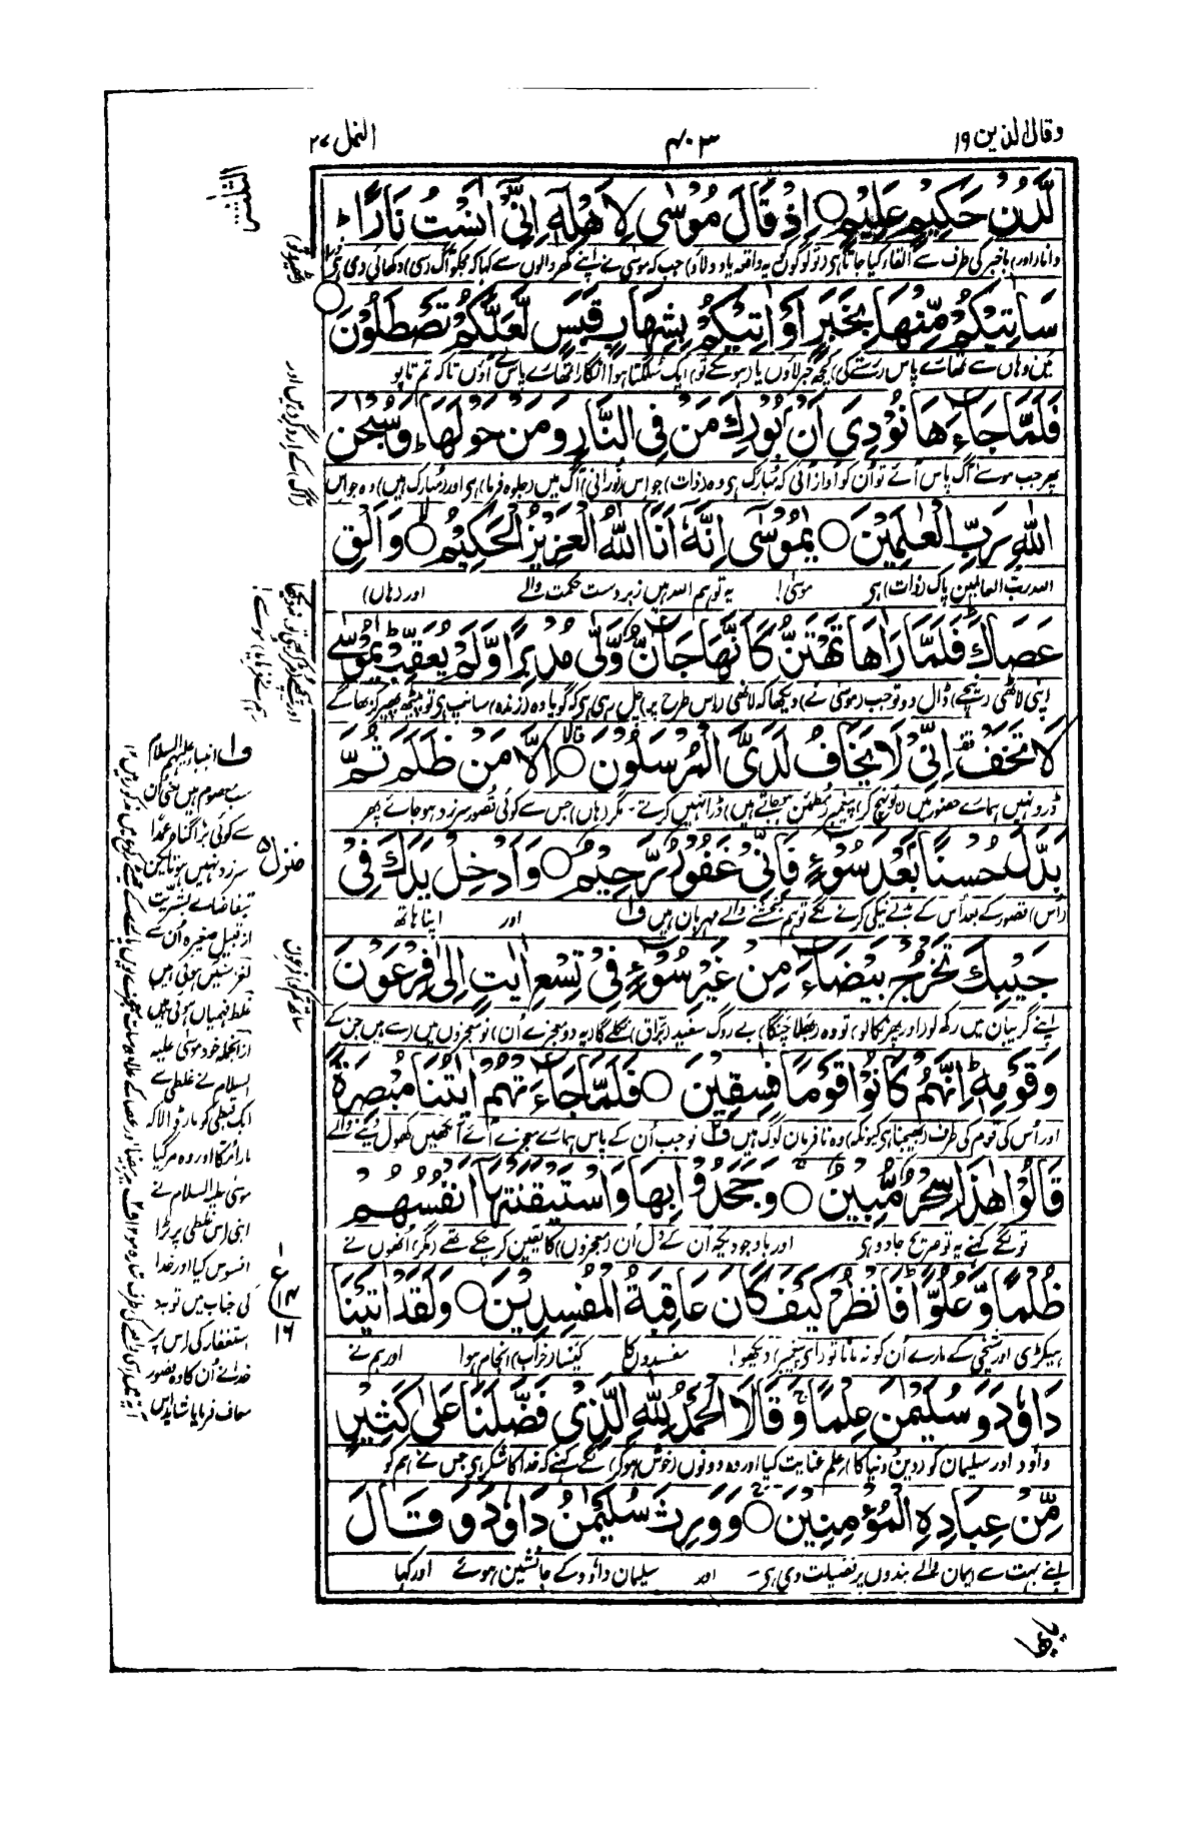 وقال الذين ۱۹
۴۰۳
النمل ۲۷
لَّدُنْ حَكِيْمٍ عَلِيْمٍ ○ اِذْ قَالَ مُوْسٰى لِاَهْلِهٖٓ اِنِّىْٓ اٰنَسْتُ نَارًا ؕ
دانا (اور) باخبر کی طرف سے القا کیا جاتا ہی (تو لوگوں کو یہ واقعہ یاد دلاؤ) جب کہ موسیٰ نے اپنے گھر والوں سے کہا کہ مجکو آگ (سی) دکھائی دی ہی
سَاٰتِيْكُمْ مِّنْهَا بِخَبَرٍ اَوْ اٰتِيْكُمْ بِشِهَابٍ قَبَسٍ لَّعَلَّكُمْ تَصْطَلُوْنَ ○
میں وہاں سے تمھارے پاس (رستے کی) کچھ خبر لاؤں یا (ہو سکے تو) ایک سُلگتا ہوا انگارا تمھارے پاس لے آؤں تاکہ تم تاپو
فَلَمَّا جَآءَهَا نُوْدِىَ اَنْۢ بُوْرِكَ مَنْ فِى النَّارِ وَمَنْ حَوْلَهَا ؕ وَسُبْحٰنَ
پھر جب موسےٰ آگ پاس آئے تو اُن کو آواز آئی کہ مُبارک ہی وہ (ذات) جو اس (نورانی) آگ میں (جلوہ فرما) ہی اور (مُبارک ہیں) وہ جو اس
(آگ) کے اِردگرد ہیں اور
اللّٰهِ رَبِّ الْعٰلَمِيْنَ ○ يٰمُوْسٰٓى اِنَّهٗٓ اَنَا اللّٰهُ الْعَزِيْزُ الْحَكِيْمُ ○ وَاَلْقِ
اللہ رب العالمین پاک (ذات) ہی موسیٰ! یہ تو ہم اللہ ہیں زبردست حکمت والے اور (ہاں)
عَصَاكَ ؕ فَلَمَّا رَاٰهَا تَهْتَزُّ كَاَنَّهَا جَآنٌّ وَّلّٰى مُدْبِرًا وَّلَمْ يُعَقِّبْ ؕ يٰمُوْسٰى
اپنی لاٹھی (نیچے) ڈال دو تو جب (موسیٰ نے) دیکھا کہ لاٹھی (اس طرح پر) چل رہی ہی کہ گویا وہ (زندہ) سانپ ہی تو پیٹھ پھیر کر بھاگے
لَا تَخَفْ اِنِّىْ لَا يَخَافُ لَدَىَّ الْمُرْسَلُوْنَ ○ اِلَّا مَنْ ظَلَمَ ثُمَّ
ڈرو نہیں ہمارے حضور میں (پہنچ کر) پیغمبر (مطمئن ہو جاتے ہیں) ڈرا نہیں کرتے۔ مگر (ہاں) جس سے کوئی قصور سرزد ہو جائے پھر
بَدَّلَ حُسْنًۢا بَعْدَ سُوْٓءٍ فَاِنِّىْ غَفُوْرٌ رَّحِيْمٌ ○ وَاَدْخِلْ يَدَكَ فِىْ
(اُس) قصور کے بعد اُس کے بدلے نیکی کرنے لگے تو ہم بخشنے والے مہربان ہیں ف۱ اور اپنا ہاتھ
جَيْبِكَ تَخْرُجْ بَيْضَآءَ مِنْ غَيْرِ سُوْٓءٍ فِىْ تِسْعِ اٰيٰتٍ اِلٰى فِرْعَوْنَ
اپنے گریبان میں رکھ لو (اور پھر نکالو) تو وہ (بھلا چنگا) بے روگ سفید (براق) نکلے گا (یہ دو معجزے اُن) نو معجزوں میں (سے ہیں جن کے
وَقَوْمِهٖ ؕ اِنَّهُمْ كَانُوْا قَوْمًا فٰسِقِيْنَ ○ فَلَمَّا جَآءَتْهُمْ اٰيٰتُنَا مُبْصِرَةً
اور اُس کی قوم کی طرف (بھیجنا ہی کیونکہ) وہ نافرمان لوگ ہیں ف۲ تو جب اُن کے پاس ہمارے معجزے آئے آنکھیں کھول دینے والے
قَالُوْا هٰذَا سِحْرٌ مُّبِيْنٌ ○ وَجَحَدُوْا بِهَا وَاسْتَيْقَنَتْهَآ اَنْفُسُهُمْ
تو لگے کہنے یہ تو صریح جادو ہی اور باوجودیکہ اُن کے دل اُن (معجزوں) کا یقین کر چکے تھے (مگر) اُنھوں نے
ظُلْمًا وَّعُلُوًّا ؕ فَانْظُرْ كَيْفَ كَانَ عَاقِبَةُ الْمُفْسِدِيْنَ ○ وَلَقَدْ اٰتَيْنَا
ہیکڑی اور شیخی کے مارے اُن کو نہ مانا تو (ای پیغمبر) دیکھو! مفسدوں کا کیسا (خراب) انجام ہوا اور ہم نے
دَاوٗدَ وَسُلَيْمٰنَ عِلْمًا ۚ وَقَالَا الْحَمْدُ لِلّٰهِ الَّذِىْ فَضَّلَنَا عَلٰى كَثِيْرٍ
داؤد اور سلیمان کو (دین و دنیا کا) علم عنایت کیا اور وہ دونوں (خوش ہو کر) لگے کہنے کہ خدا کا شکر ہی جس نے ہم کو
مِّنْ عِبَادِهِ الْمُؤْمِنِيْنَ ○ وَوَرِثَ سُلَيْمٰنُ دَاوٗدَ وَقَالَ
اپنے بہت سے ایمان والے بندوں پر فضیلت دی ہی۔ اور سلیمان داؤد کے جانشین ہوئے اور کہا
الثلثۃ
منزل ۵
ف۱ انبیاء علیہم السلام
سب معصوم ہیں یعنی اُن
سے کوئی بڑا گناہ عمدًا
سرزد نہیں ہوتا لیکن
بتقاضائے بشریت
از قبیل صغیرہ اُن سے
لغزشیں ہوئی ہیں
غلط فہمیاں ہوئی ہیں
ازانجملہ خود موسیٰ علیہ
السلام نے غلطی سے
ایک قبطی کو مار ڈالا کہ
مارا مُکا اور وہ مر گیا
موسیٰ علیہ السلام نے
اپنی اس غلطی پر بڑا
افسوس کیا اور خدا
کی جناب میں توبہ و
استغفار کی اس پر
خدا نے اُن کا وہ قصور
معاف فرمایا شاید اس